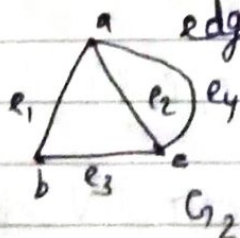 a edg
e₁ e₂ e₄
b e₃ c
G₂